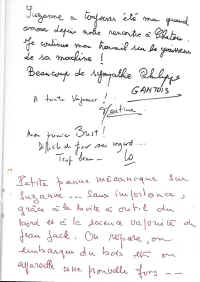 Suzanne a toujours été mon grand
amour depuis notre rencontre à Chatou.
Je continue mon travail sur la
de sa machine !
Beaucoup de sympathie Philippe
GANTOIS
A toute vapeur !
Mon premier Bust !
Difficile de fuir son regard...
Trop beau
Petite panne mécanique sur
Suzanne... Sans importance,
grâce à la boîte à outil du
bord et à la science vaporiste de
Jean Jack. On répare, on
embarque du bois et on
appareille une nouvelle fois --